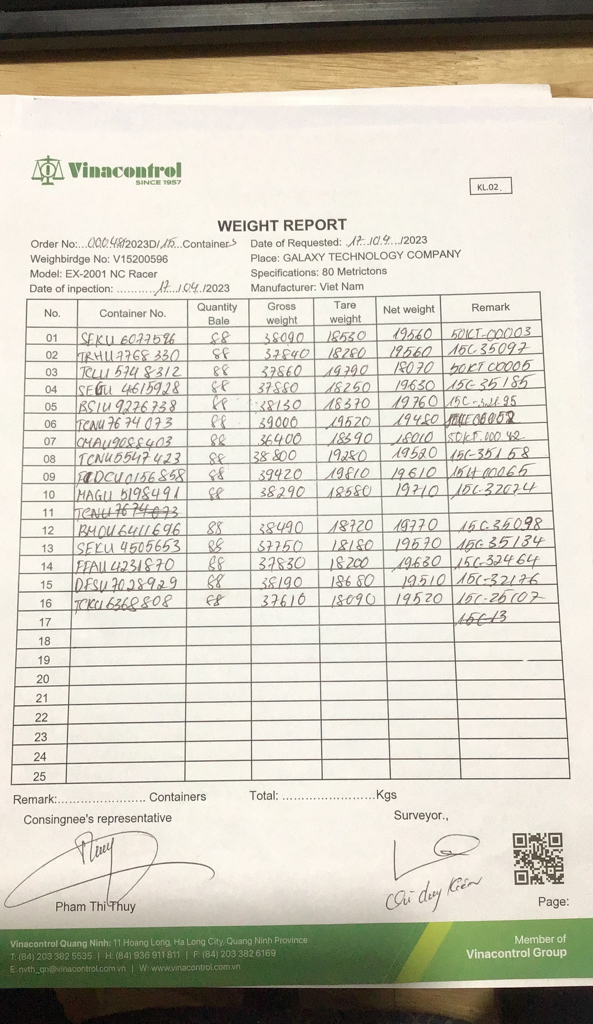 Vinacontrol
SINCE 1957
KL.02.
WEIGHT REPORT
Order No:...000.48/2023D/15...Containers Date of Requested: 17./04../2023
Weighbridge No: V15200596 Place: GALAXY TECHNOLOGY COMPANY
Model: EX-2001 NC Racer Specifications: 80 Metrictons
Date of inpection: ............17../04./2023 Manufacturer: Viet Nam
No. Container No. Quantity Bale Gross weight Tare weight Net weight Remark
01 SEKU 6077596 88 38090 18530 19560 50KT-00003
02 TRHU7768 330 88 37840 18280 19560 15C35097
03 TCLU 5748312 88 37860 19790 18070 50KT00005
04 SEGU 4615928 88 37880 18250 19630 15C-35185
05 BSIU 9276738 88 38130 18370 19760 15C-32895
06 TCNU7674073 88 39000 19520 19480
07 CMAU9088403 88 36400 18390 18010 50KT.000 42
08 TCNU5547423 88 38800 19280 19520 15C-35158
09 FDCU0156858 88 39420 19810 19610 15H00065
10 MAGU 5198491 88 38290 18580 19710 15C-32074
11 TCNU7674073
12 BMOU6411696 88 38490 18720 19770 15C-35098
13 SEKU 4505653 88 37750 18180 19570 15C-35134
14 FFAU 4231870 88 37830 18200 19630 15C-32464
15 DFSU7028929 88 38190 18680 19510 15C-32176
16 TCKU6368808 88 37610 18090 19520 15C-25107
17 15C-13
18
19
20
21
22
23
24
25
Remark:........................ Containers Total: ..........................Kgs
Consingnee's representative Surveyor.,
Pham Thi Thuy
Chu Duy Kiên
Page:
Vinacontrol Quang Ninh: 11 Hoang Long, Ha Long City, Quang Ninh Province
T: (84) 203 382 5535 | H: (84) 936 911 811 | F: (84) 203 382 6169
E: nvth_qn@vinacontrol.com.vn | W: www.vinacontrol.com.vn
Member of
Vinacontrol Group